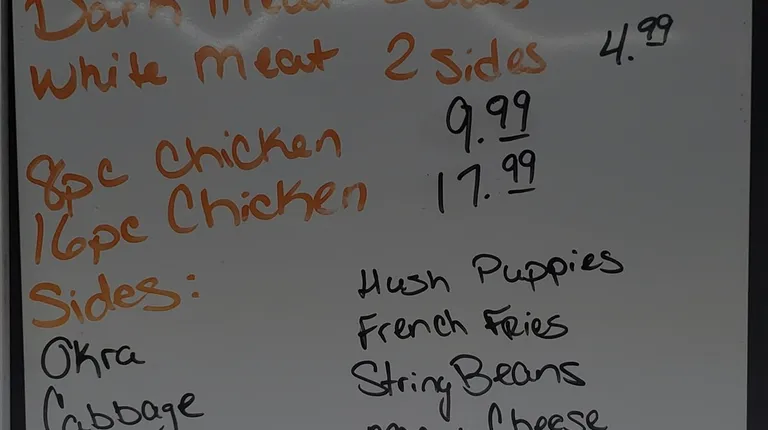 Dark meat 2 sides
White meat 2 sides 4.99
8pc Chicken 9.99
16pc Chicken 17.99
Sides:
Hush Puppies
French Fries
Okra
String Beans
Cabbage
Cheese